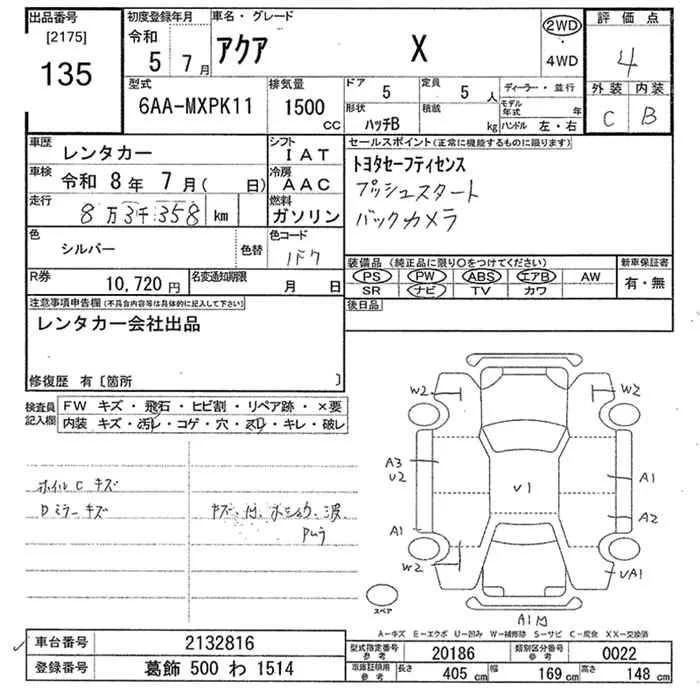 出品番号
[2175]
135
初度登録年月
令和
5 7月
車名・グレード
アクア X
2WD
・
4WD
評価点
4
外装 内装
C B
型式
6AA-MXPK11
排気量
1500 CC
ドア 5
定員 5 人
形状 ハッチB
積載 kg
ディーラー・並行
モデル年式 年
ハンドル 左・右
車歴 レンタカー
車検 令和 8年 7月( 日)
走行 8万3千358 km
シフト IAT
冷房 AAC
燃料 ガソリン
セールスポイント(正常に機能するものに限ります)
トヨタセーフティセンス
プッシュスタート
バックカメラ
色 シルバー
色替
色コード
1F7
R券 10,720円
名変通知期限 月 日
装備品 (純正品に限り○をつけてください)
PS PW ABS エアB AW
SR ナビ TV カワ
新車保証書
有・無
注意事項申告欄(不具合内容等は具体的に記入して下さい)
レンタカー会社出品
後日品
修復歴 有〔箇所 〕
検査員記入欄
FW キズ・飛石・ヒビ割・リペア跡・×要
内装 キズ・汚レ・コゲ・穴・スリ・キレ・破レ
ホイルC キズ
Dミラーキズ
W2
W2
A3
U2
V1
A1
A2
A1
W2
UA1
A1
スペア
A-キズ E-エクボ U-凹み W-補修跡 S-サビ C-腐食 XX-交換済
車台番号 2132816
登録番号 葛飾 500 わ 1514
型式指定番号 参考 20186
類別区分番号 参考 0022
車庫証明用 参考 長さ 405 cm 幅 169 cm 高さ 148 cm